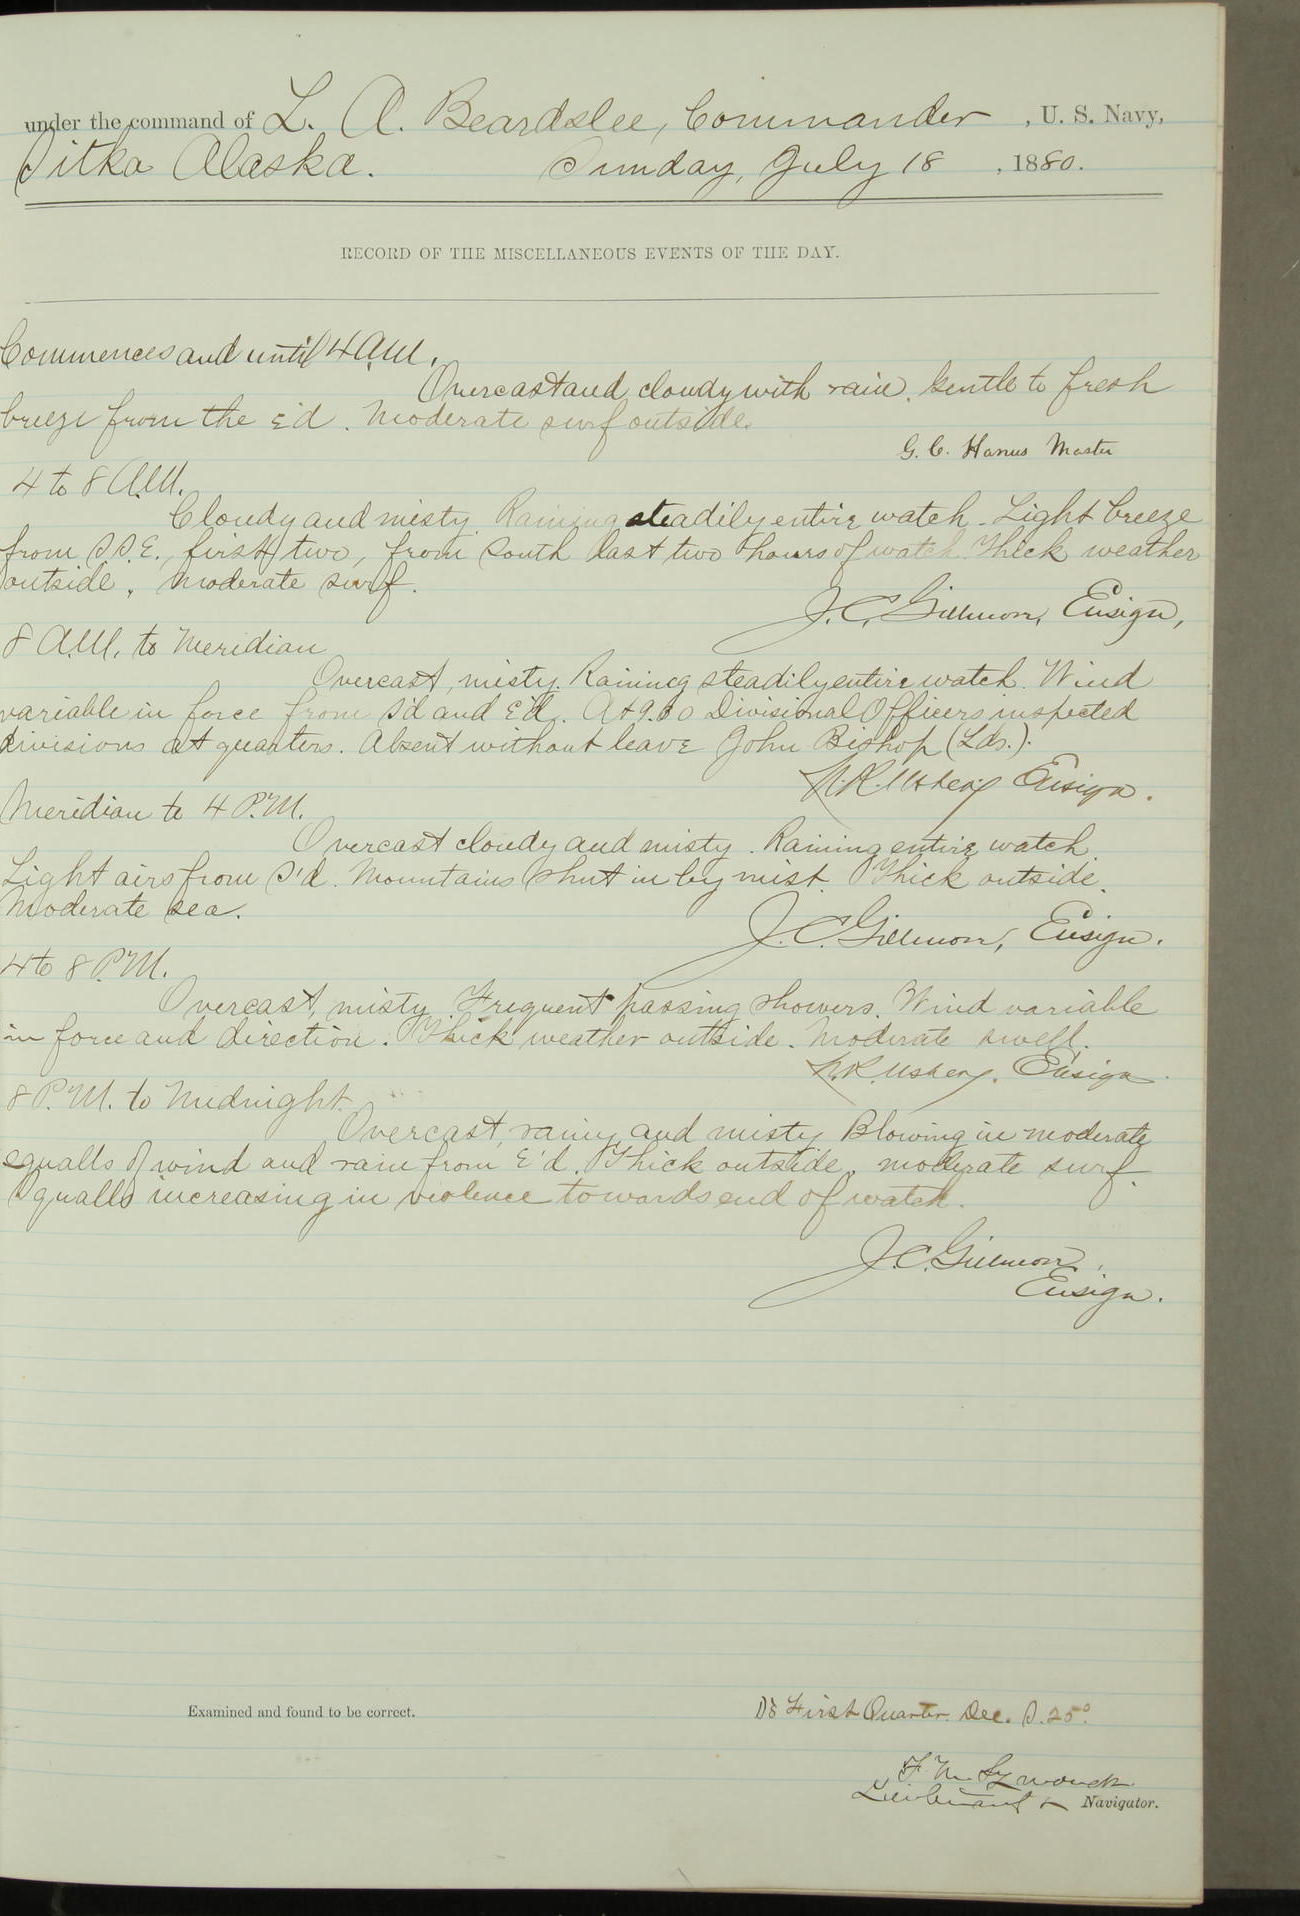 under the command of L. A. Beardslee, Commander , U. S. Navy,
Sitka Alaska. Sunday, July 18 , 1880.
RECORD OF THE MISCELLANEOUS EVENTS OF THE DAY.
Commences and until 4 A.M.
Overcast and cloudy with rain. Gentle to fresh
breeze from the E'd. Moderate surf outside.
G. C. Hanus Master
4 to 8 A.M.
Cloudy and misty. Raining steadily entire watch. Light breeze
from S.S.E., first two, from South last two hours of watch. Thick weather
outside. Moderate surf.
J. C. Gillmore, Ensign,
8 A.M. to Meridian
Overcast, misty. Raining steadily entire watch. Wind
variable in force from S'd and E'd. At 9.00 Divisional Officers inspected
divisions at quarters. Absent without leave John Bishop (Lds.).
N.R. Usher, Ensign.
Meridian to 4 P.M.
Overcast cloudy and misty. Raining entire watch.
Light airs from S'd. Mountains shut in by mist. Thick outside.
Moderate sea.
J. C. Gillmore, Ensign.
4 to 8 P.M.
Overcast, misty. Frequent passing showers. Wind variable
in force and direction. Thick weather outside. Moderate swell.
N.R. Usher, Ensign.
8 P.M. to Midnight.
Overcast, rainy and misty Blowing in moderate
squalls of wind and rain from E'd. Thick outside, moderate surf.
Squalls increasing in violence towards end of watch.
J. C. Gillmore,
Ensign.
Examined and found to be correct.
First Quarter. Dec. S. 25°.
F. M. Symonds
Lieutenant & Navigator.